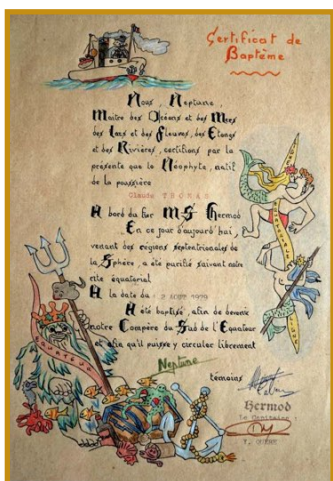 Certificat de
Baptême
Nous, Neptune,
Maitre des Océans et des Mers
des Lacs et des Fleuves, des Etangs
et des Rivières, certifions par la
présente que le Néophyte, natif
de la poussière
Claude THOMAS
A bord du fier MS Hermod
En ce jour d'aujourd'hui,
venant des régions septentrionales de
la Sphère, a été purifié suivant notre
rite équatorial
A la date du
A été baptisé, afin de devenir
notre Compère du Sud de l'Equateur
et afin qu'il puisse y circuler librement
Neptune
témoins
EQUATEUR
Hermod
Le Capitaine